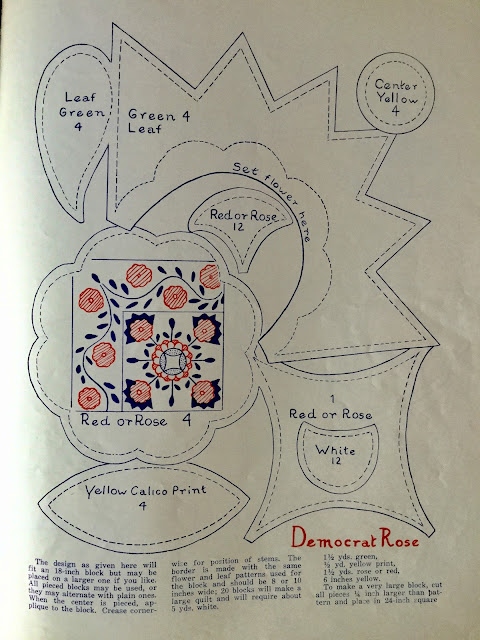 Leaf
Green
4
Green 4
Leaf
Center
Yellow
4
Set flower here
Red or Rose
12
Red or Rose 4
1
Red or Rose
White
12
Yellow Calico Print
4
Democrat Rose
The design as given here will
fit an 18-inch block but may be
placed on a larger one if you like.
All pieced blocks may be used, or
they may alternate with plain ones.
When the center is pieced, ap-
plique to the block. Crease corner-
wice for position of stems. The
border is made with the same
flower and leaf patterns used for
the block and should be 8 or 10
inches wide; 20 blocks will make a
large quilt and will require about
5 yds. white.
1½ yds. green,
yd. yellow print,
1½ yds. rose or red,
6 inches yellow,
To make a very large block, cut
all pieces ¼ inch larger than pat-
tern and place in 24-inch square